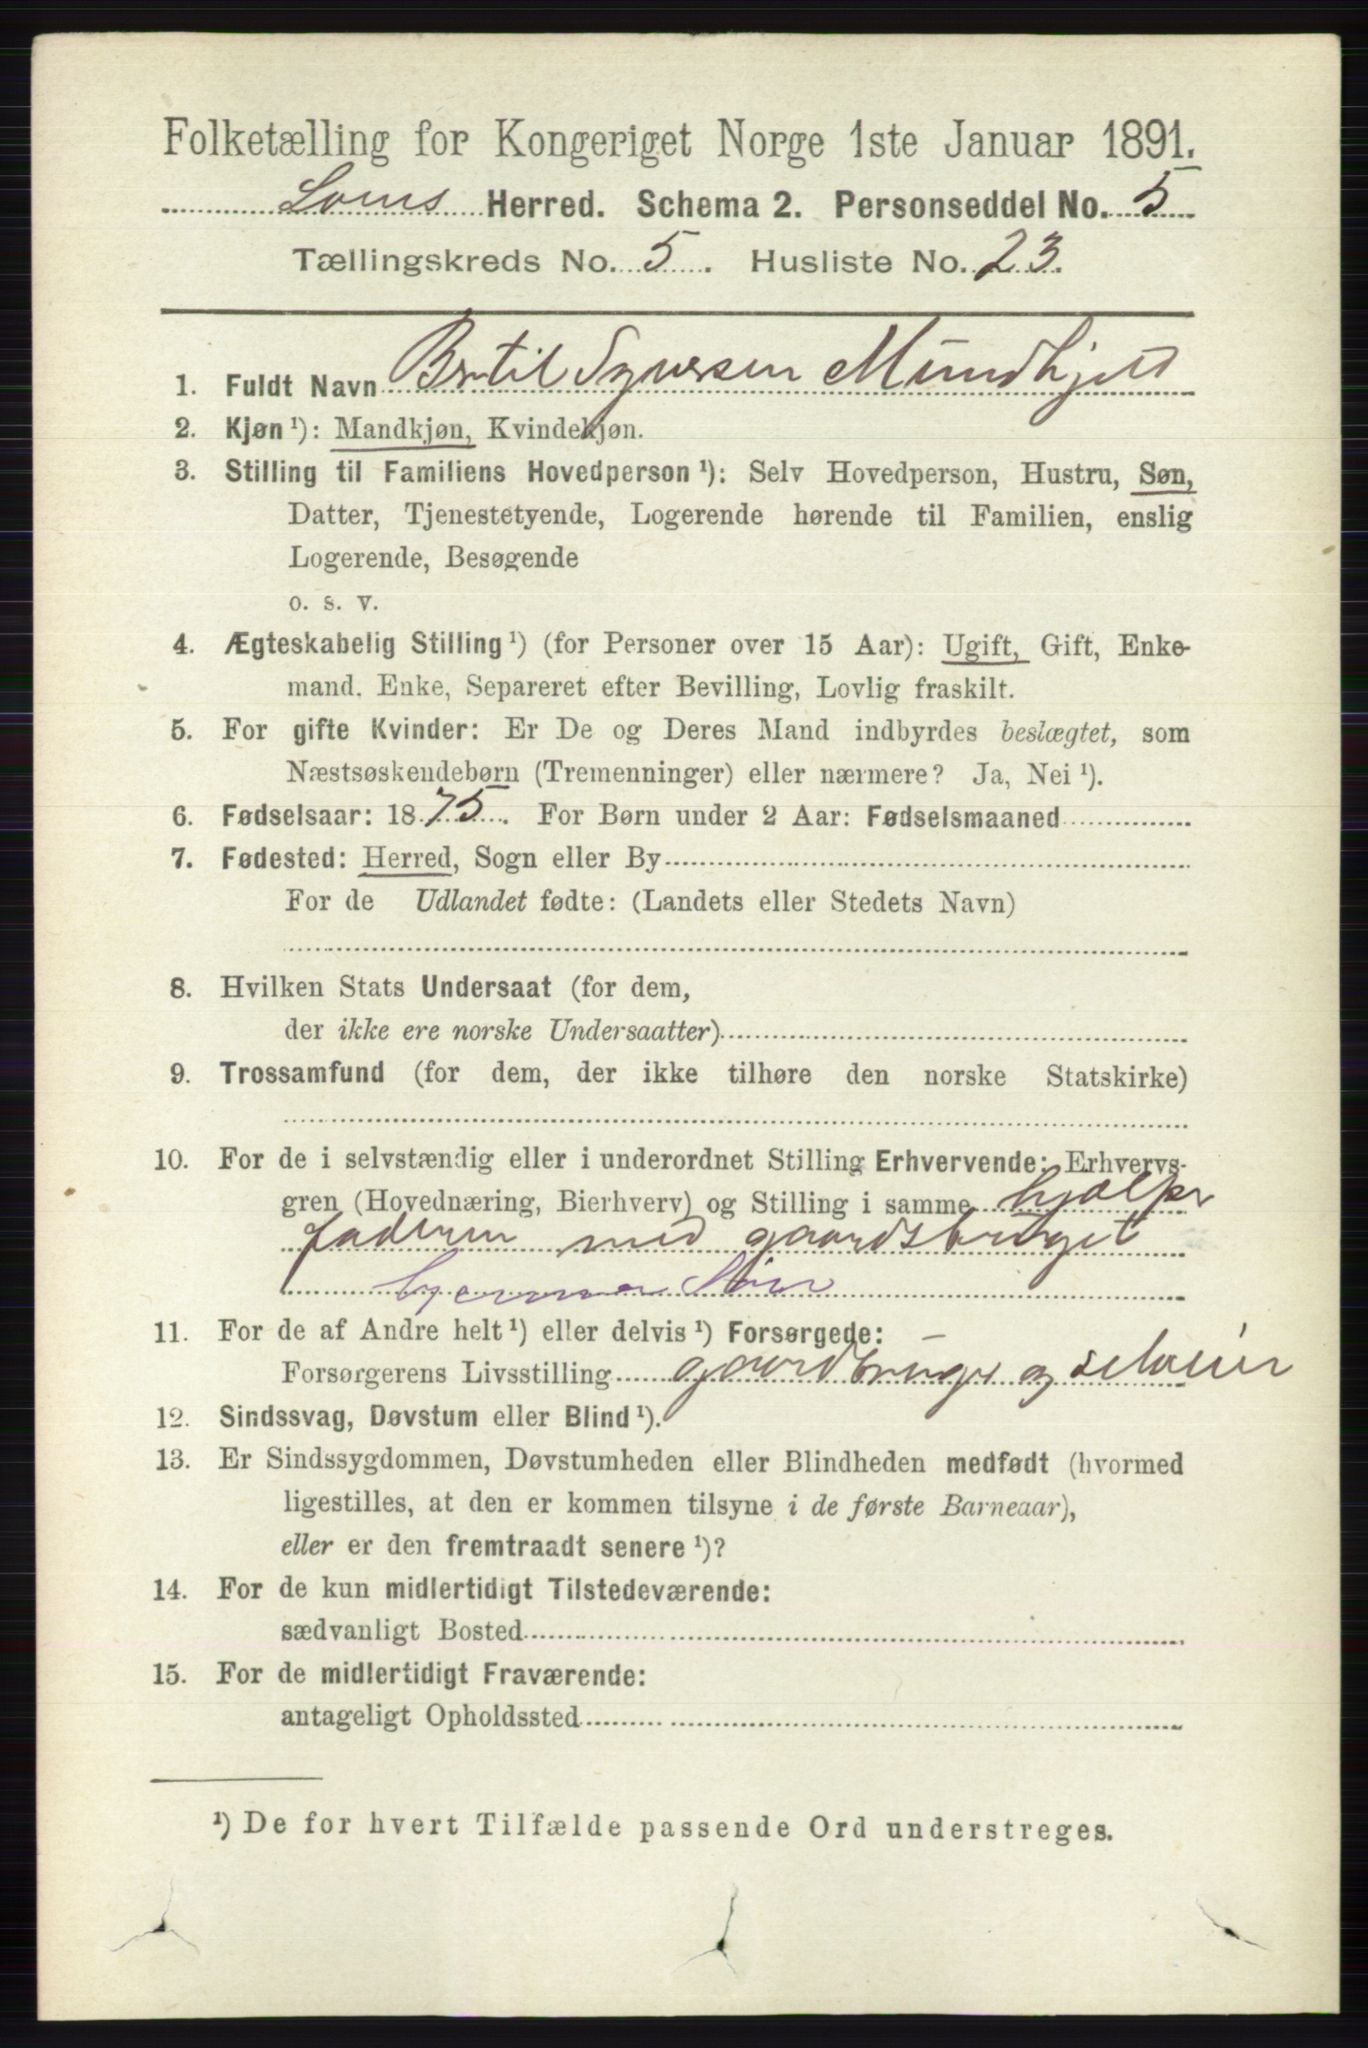 Folketælling for Kongeriget Norge 1ste Januar 1891.
Loms Herred. Schema 2. Personseddel No. 5
Tællingskreds No. 5. Husliste No. 23.
1. Fuldt Navn Bertil Syversen Mundhjeld
2. Kjøn ¹): Mandkjøn, Kvindekjøn.
3. Stilling til Familiens Hovedperson ¹): Selv Hovedperson, Hustru, Søn,
Datter, Tjenestetyende, Logerende hørende til Familien, enslig
Logerende, Besøgende
o. s. v.
4. Ægteskabelig Stilling ¹) (for Personer over 15 Aar): Ugift, Gift, Enke-
mand, Enke, Separeret efter Bevilling, Lovlig fraskilt.
5. For gifte Kvinder: Er De og Deres Mand indbyrdes beslægtet, som
Næstsøskendebørn (Tremenninger) eller nærmere? Ja, Nei ¹).
6. Fødselsaar: 1875. For Børn under 2 Aar: Fødselsmaaned
7. Fødested: Herred, Sogn eller By
For de Udlandet fødte: (Landets eller Stedets Navn)
8. Hvilken Stats Undersaat (for dem,
der ikke ere norske Undersaatter)
9. Trossamfund (for dem, der ikke tilhøre den norske Statskirke)
10. For de i selvstændig eller i underordnet Stilling Erhvervende: Erhvervs-
gren (Hovednæring, Bierhverv) og Stilling i samme hjælper
faderen med gaardsbruget
hjemmev
11. For de af Andre helt ¹) eller delvis ¹) Forsørgede:
Forsørgerens Livsstilling gaardbruger og selveier
12. Sindssvag, Døvstum eller Blind ¹).
13. Er Sindssygdommen, Døvstumheden eller Blindheden medfødt (hvormed
ligestilles, at den er kommen tilsyne i de første Barneaar),
eller er den fremtraadt senere ¹)?
14. For de kun midlertidigt Tilstedeværende:
sædvanligt Bosted
15. For de midlertidigt Fraværende:
antageligt Opholdssted
¹) De for hvert Tilfælde passende Ord understreges.